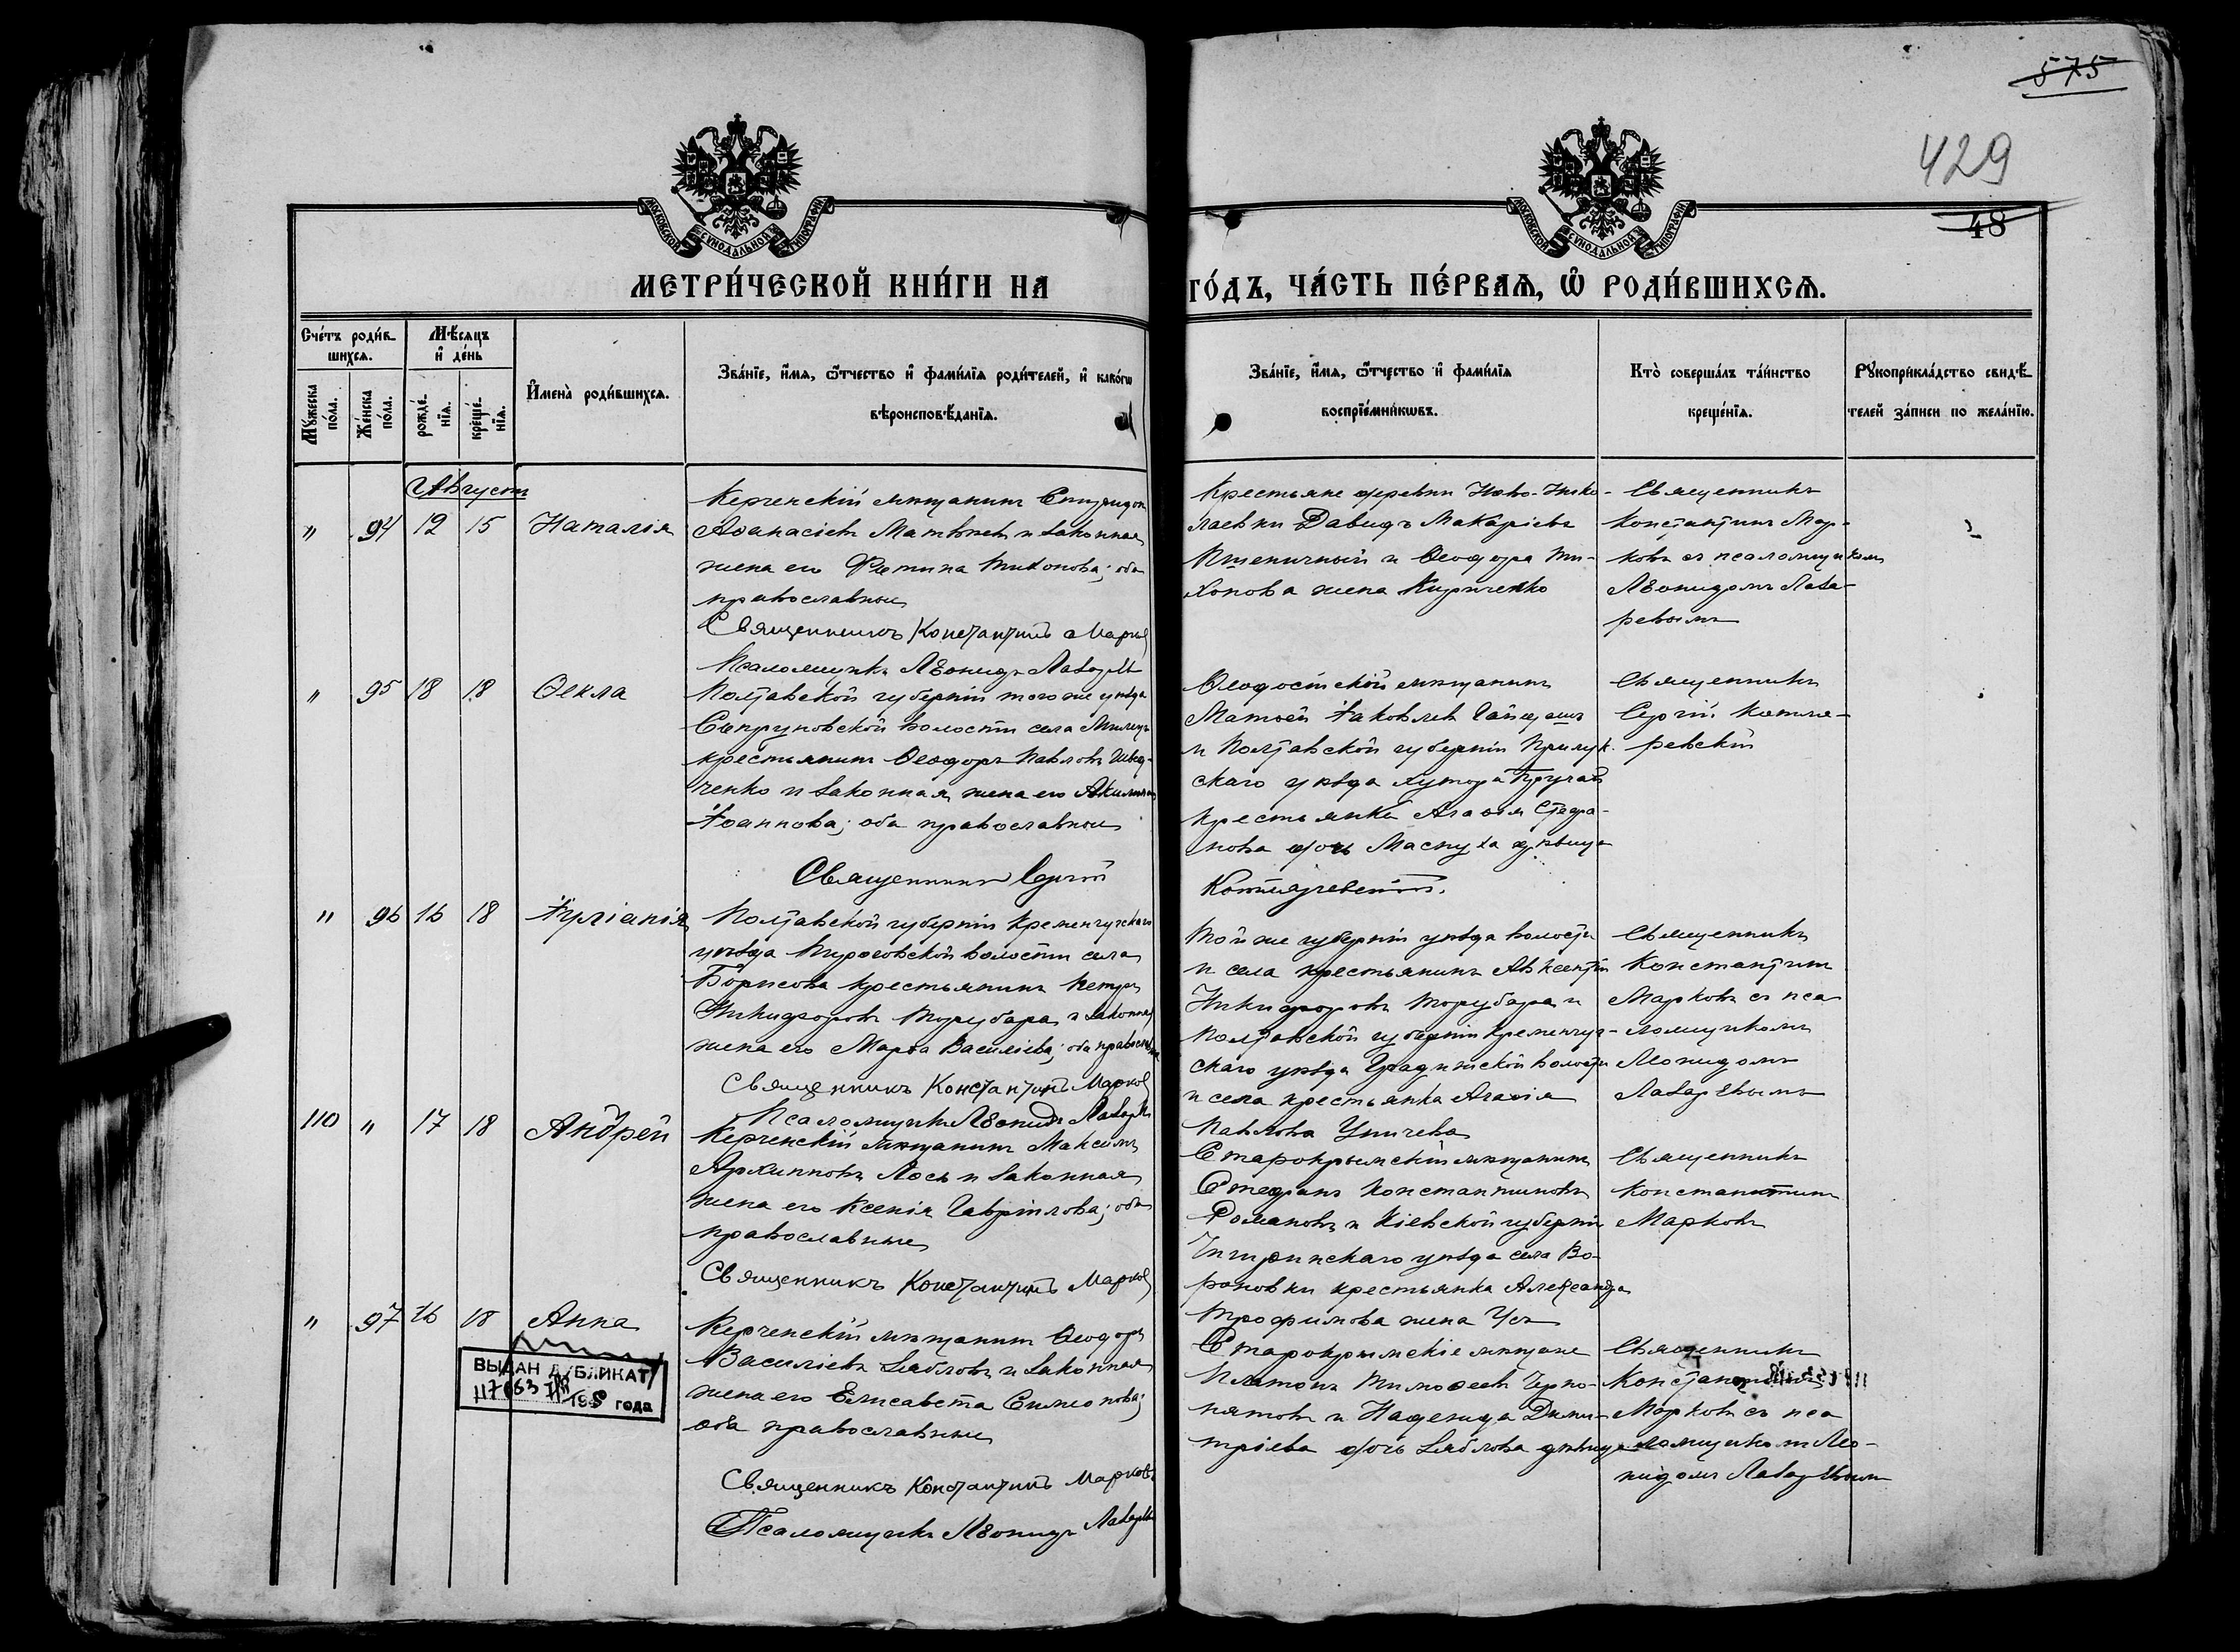 575
429
48
МОСКОВСКОЙ СѴНОДАЛЬНОЙ ТИПОГРАФІИ
МОСКОВСКОЙ СѴНОДАЛЬНОЙ ТИПОГРАФІИ
МЕТРИ́ЧЕСКОЙ КНИ́ГИ НА
ГО́ДЪ, ЧА́СТЬ ПЕ́РВАѦ, Ѡ҆ РОДИ́ВШИХСѦ.
Сче́тъ роди́в
шихсѧ.
Мѣ́сѧцъ
и҆ де́нь
Мꙋ́жеска
по́ла.
Же́нска
по́ла.
рожде́
нїѧ.
креще́
нїѧ.
И҆мена̀ роди́вшихсѧ.
Зва́нїе, и҆́мѧ, ѻ҆́тчество и҆ фами́лїѧ роди́телей, и҆ како́гѡ
вѣроисповѣ́данїѧ.
Зва́нїе, и҆́мѧ, ѻ҆́тчество и҆ фами́лїѧ
воспрїе́мникѡвъ.
Кто̀ соверша́лъ та́инство
креще́нїѧ.
Рꙋкоприкла́дство свидѣ́
телей за́писи по жела́нїю.
Августъ
" 94 12 15 Наталія
Керченскій мѣщанинъ Спиридонъ
Аѳанасіевъ Матвѣевъ и законная
жена его Фотина Тихонова; оба
православные
Священникъ Константинъ Марковъ
Псаломщикъ Леонидъ Лазаревъ
Крестьяне деревни Ново-Нико-
лаевки Давидъ Макаріевъ
Пшеничный и Ѳеодора Ти-
хонова жена Кириченко
Священникъ
Константинъ Мар-
ковъ съ псаломщикомъ
Леонидомъ Лаза-
ревымъ
" 95 18 18 Ѳекла
Полтавской губерніи того же уѣзда
Супруновской волости села
крестьянинъ Ѳеодоръ Павловъ Швед-
ченко и законная жена его Акилина
Іоаннова; оба православные
Священникъ Сергій
Ѳеодосійскій мѣщанинъ
Матѳей Іаковлевъ
и Полтавской губерніи Прилук-
скаго уѣзда хутора
крестьянка Агаѳія Стефа-
нова дочь дѣвица
Котляревскій.
Священникъ
Сергій Котля-
ревскій
" 96 16 18 Іуліанія
Полтавской губерніи Кременчугскаго
уѣзда волости села
Борисова крестьянинъ Петръ
Никифоровъ Торубара и законная
жена его Марѳа Василіева; оба православные
Священникъ Константинъ Марковъ
Псаломщикъ Леонидъ Лазаревъ
Той же губерніи уѣзда волости
и села крестьянинъ Авксентій
Никифоровъ Торубара и
Полтавской губерніи Кременчуг-
скаго уѣзда Градижской волости
и села крестьянка Агаѳія
Павлова
Священникъ
Константинъ
Марковъ съ пса
ломщикомъ
Леонидомъ
Лазаревымъ
110 " 17 18 Андрей
Керченскій мѣщанинъ Максимъ
Архиповъ Лось и законная
жена его Ксенія Гавріилова; оба
православные
Священникъ Константинъ Марковъ
Старокрымскій мѣщанинъ
Стефанъ Константиновъ
Романовъ и Кіевской губерніи
Чигиринскаго уѣзда села Во-
роновки крестьянка Александра
Трофимова жена Усъ
Священникъ
Константинъ
Марковъ
" 97 16 18 Анна
ВЫДАН ДУБЛИКАТ
195 года
Керченскій мѣщанинъ Ѳеодоръ
Василіевъ Зябловъ и законная
жена его Елисавета Симеонова;
оба православные
Священникъ Константинъ Марковъ
Псаломщикъ Леонидъ Лазаревъ
Старокрымскіе мѣщане
Платонъ Тимоѳеевъ Черно-
пятовъ и Надежда Дими-
тріева дочь Зяблова дѣвица
Священникъ
Константинъ
Марковъ съ пса
ломщикомъ Лео-
нидомъ Лазаревымъ